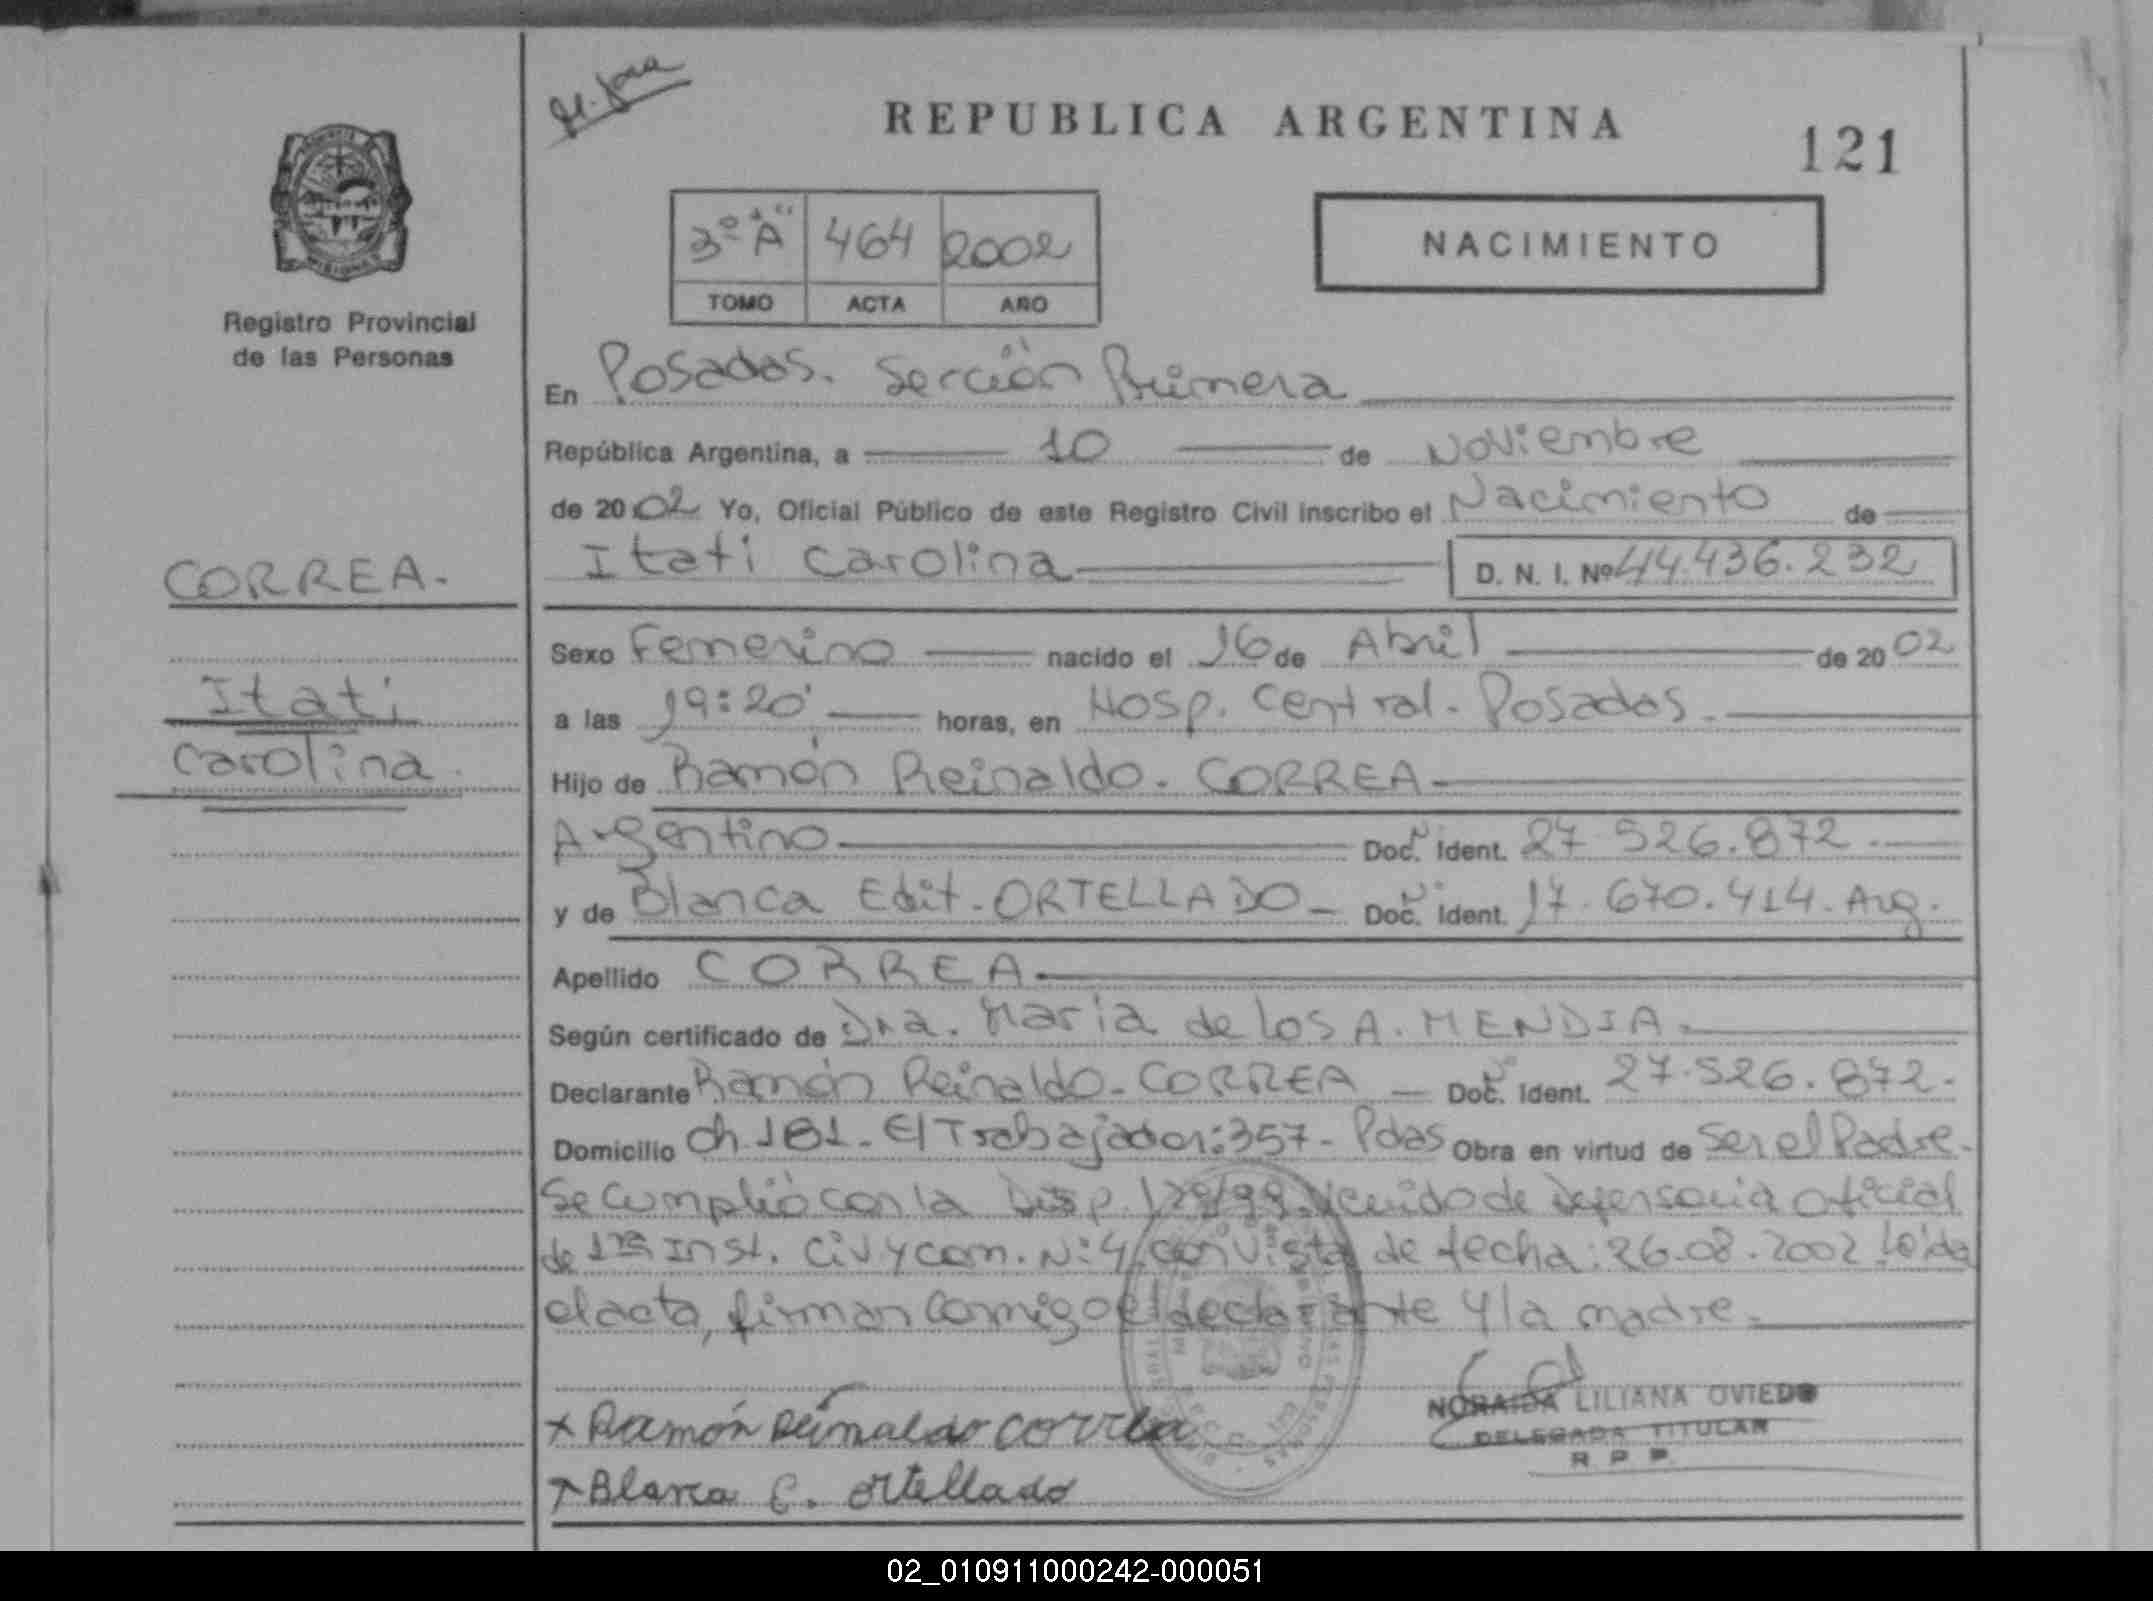 REPUBLICA ARGENTINA
121
3º "A" 464 2002
TOMO ACTA AÑO
NACIMIENTO
MISIONES
Registro Provincial
de las Personas
CORREA.
Itati
Carolina.
En Posadas. Sección Primera
República Argentina, a 10 de Noviembre
de 2002 Yo, Oficial Público de este Registro Civil inscribo el Nacimiento de
Itati Carolina D. N. I. Nº 44.436.232
Sexo Femenino nacido el 16 de Abril de 2002
a las 19:20' horas, en Hosp. Central. Posadas.
Hijo de Ramón Reinaldo. CORREA
Argentino Doc. Ident. 27.526.872.
y de Blanca Edit. ORTELLADO Doc. Ident. 17.670.414. Arg.
Apellido CORREA
Según certificado de Dra. Maria de los A. MENDIA.
Declarante Ramón Reinaldo. CORREA Doc. Ident. 27.526.872.
Domicilio Ch. 181. El Trabajador: 357- Pdas Obra en virtud de Ser el Padre.
Se cumplió con la Disp. 129/99. Venido de Defensoria Oficial
de 1ra Inst. Civ y com. N: 4, con vista de fecha: 26.08.2002. Leida
el acta, firman conmigo el declarante y la madre.
x Ramón Reinaldo Correa
Blanca E. Ortellado
NORAIDA LILIANA OVIEDO
DELEGADA TITULAR
R P P
02_010911000242-000051